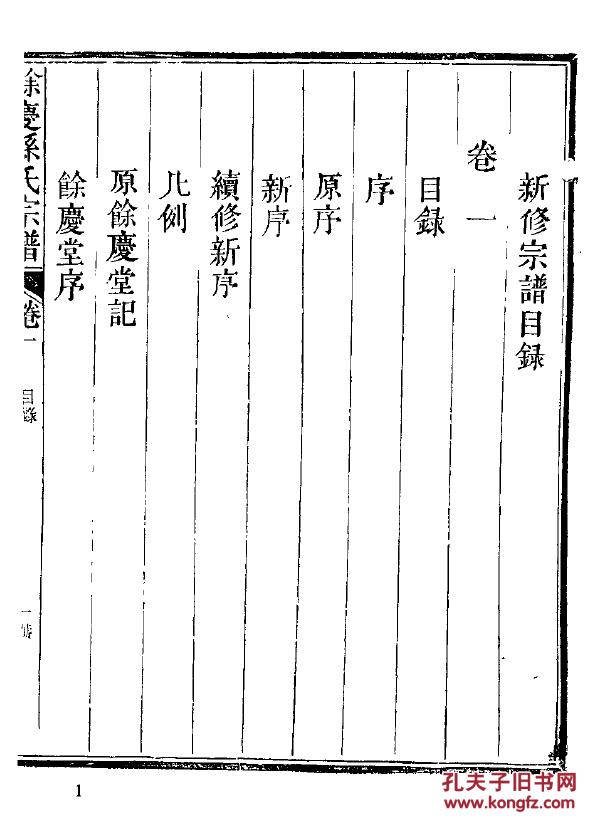 新修宗譜目録
卷一
目録
序
原序
新序
續修新序
凡例
原餘慶堂記
餘慶堂序
餘慶孫氏宗譜
卷一
目錄
一
1
孔夫子旧书网
www.kongfz.com